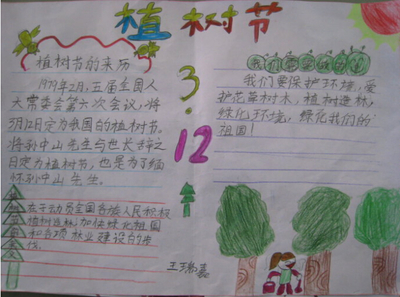 植树节
植树节的来历
1979年2月,五届全国人
大常委会第六次会议,将
3月12日定为我国的植树节。
将孙中山先生与世长辞之
日定为植树节,也是为了缅
怀孙中山先生。
为了动员全国各族人民积极
植树造林,加快绿化祖国
和各项林业建设的步
伐。
3
.
12
我们要保护环境,爱
护花草树木,植树造林,
绿化环境,绿化我们的
祖国!